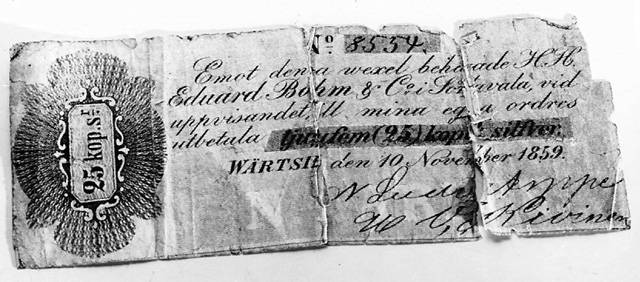 No 8554.
Emot denna wexel behagade H.H.
Eduard Bohm & C:i Sordavala, vid
uppvisandet till mina egna ordres
utbetala tjugufem (25) kop. silfver.
WÄRTSIL den 10 November 1859.
N Lud Arppe
Kivinen
25 kop. s:r